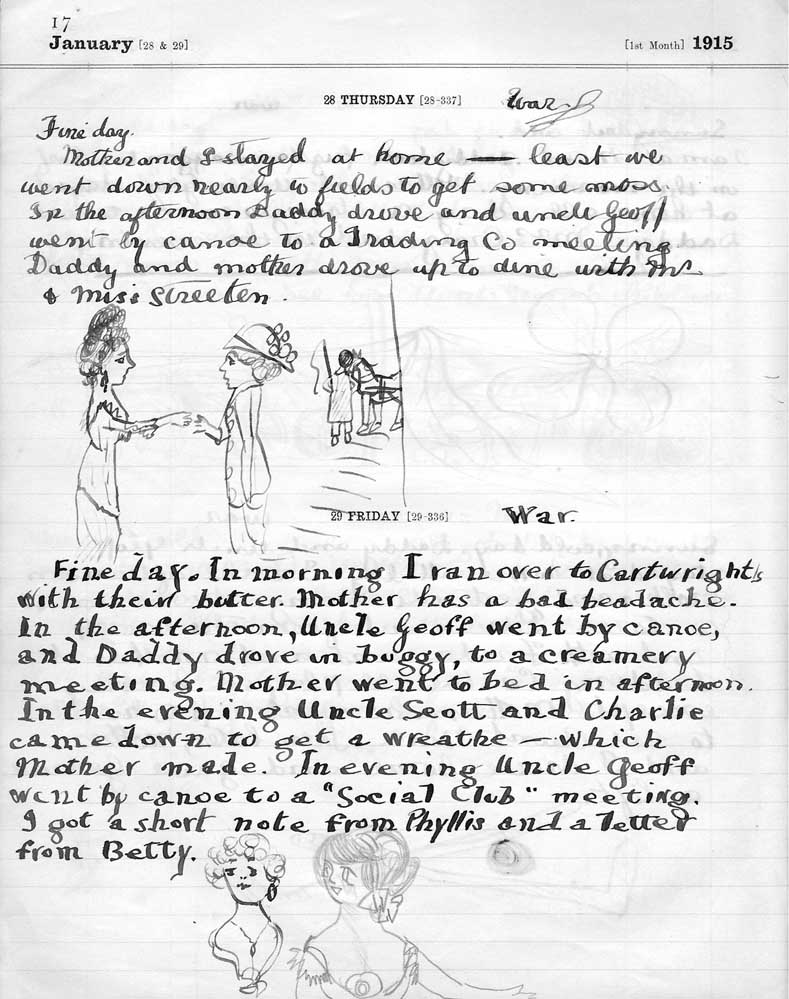 17
January [28 & 29] [1st Month] 1915
28 THURSDAY [28-337] War
Fine day.
Mother and I stayed at home — least we
went down nearly to fields to get some moss.
In the afternoon Daddy drove and uncle Geoff
went by canoe to a Trading Co meeting
Daddy and mother drove up to dine with Mr
& Miss Streeten.
29 FRIDAY [29-336] War.
Fine day. In morning I ran over to Cartwright's
with their butter. Mother has a bad headache.
In the afternoon, Uncle Geoff went by canoe,
and Daddy drove in buggy, to a creamery
meeting. Mother went to bed in afternoon.
In the evening Uncle Scott and Charlie
came down to get a wreathe — which
Mother made. In evening Uncle Geoff
went by canoe to a "Social Club" meeting.
I got a short note from Phyllis and a letter
from Betty.